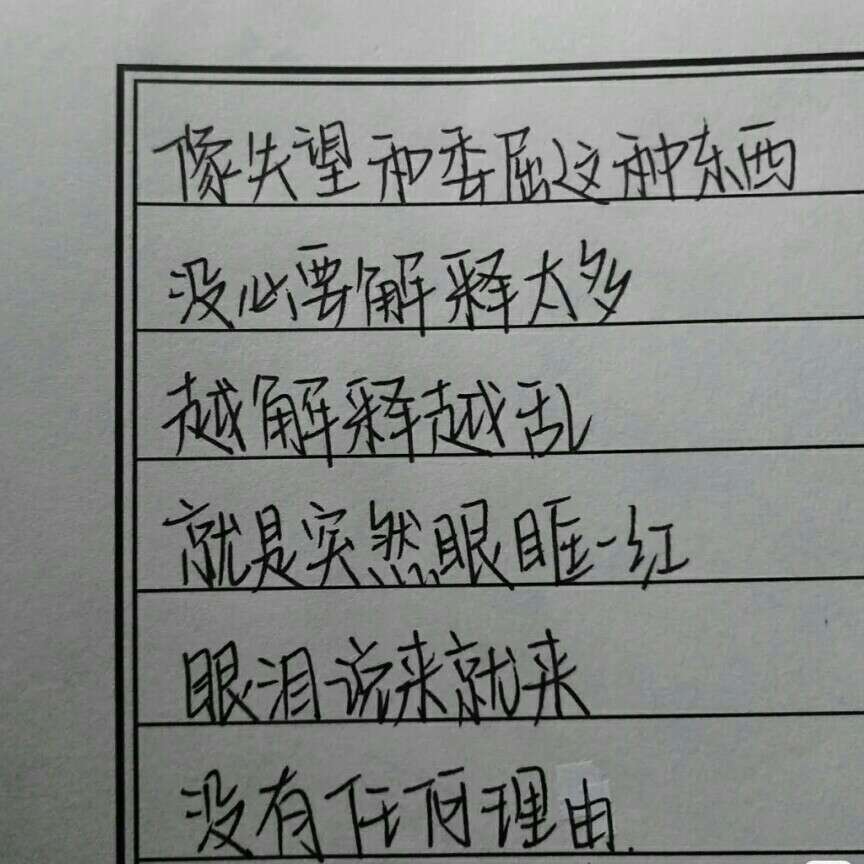 像失望和委屈这种东西
没必要解释太多
越解释越乱
就是突然眼眶一红
眼泪说来就来
没有任何理由.